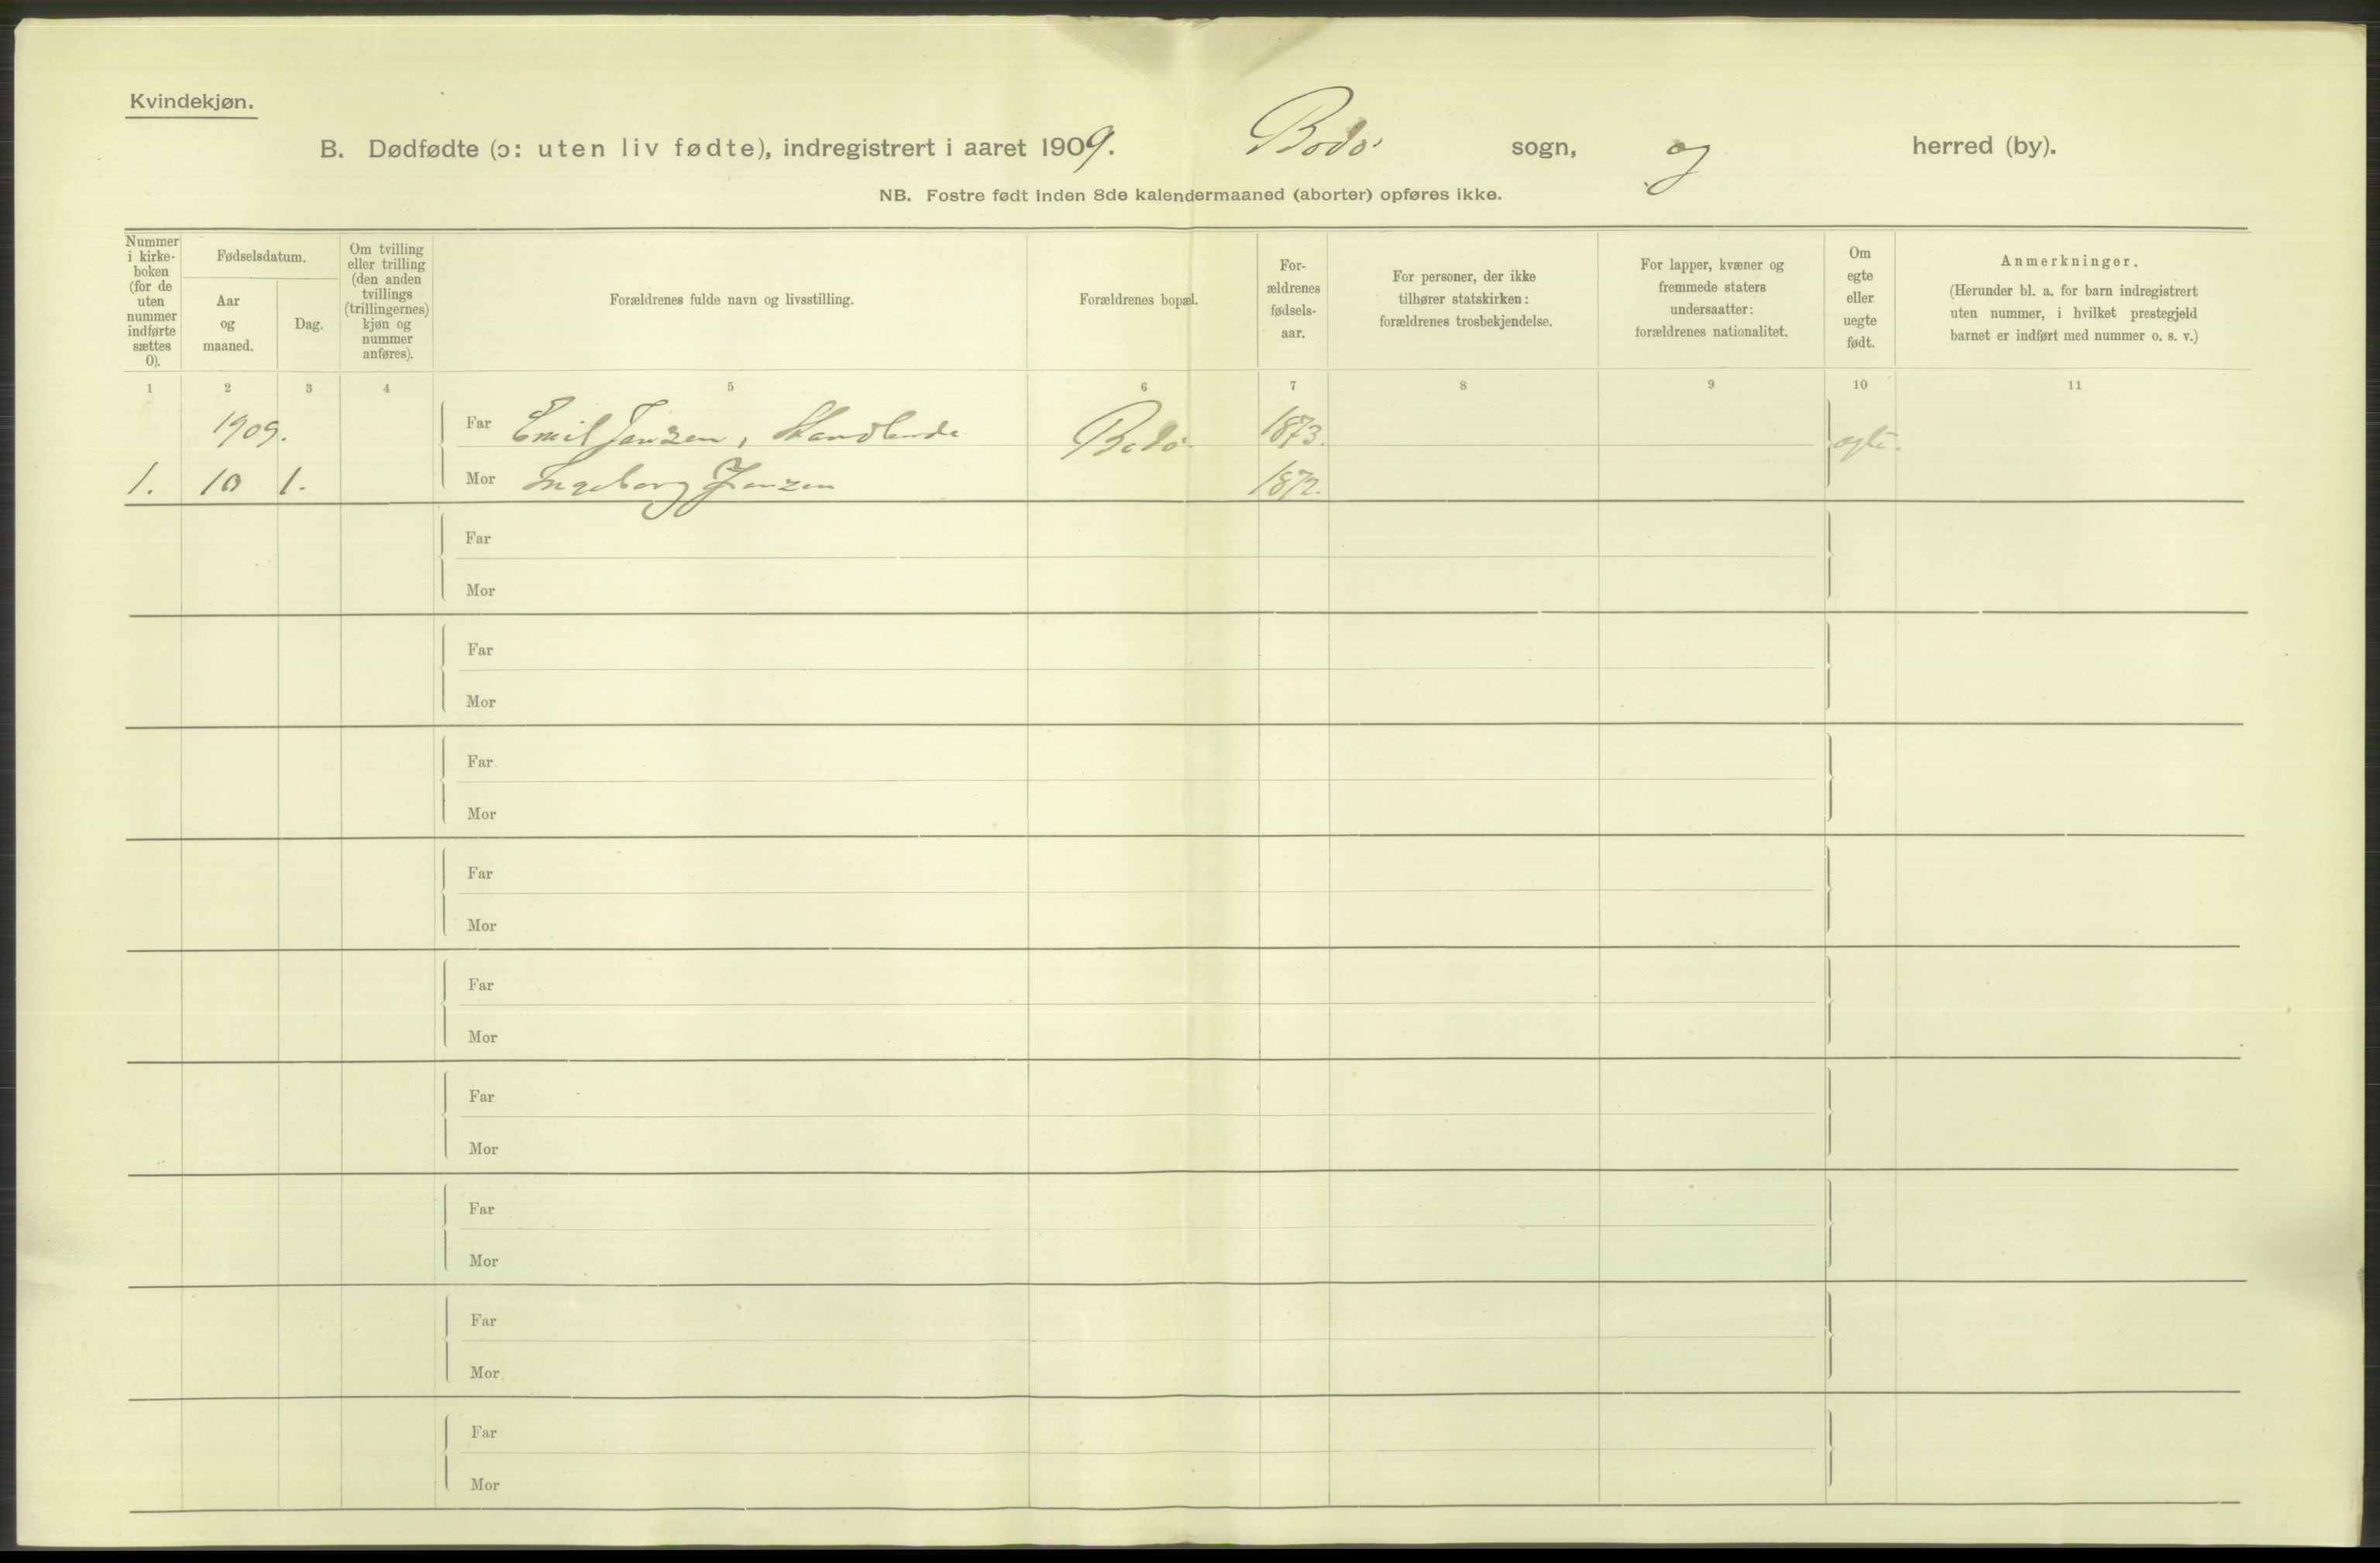 Kvindekjøn.
B. Dødfødte (ɔ: uten liv fødte), indregistrert i aaret 1909. Bodø sogn, og herred (by).
NB. Fostre født inden 8de kalendermaaned (aborter) opføres ikke.
Nummer
i kirke-
boken
(for de
uten
nummer
indførte
sættes
0).
Fødselsdatum.
Aar
og
maaned.
Dag.
Om tvilling
eller trilling
(den anden
tvillings
(trillingernes)
kjøn og
nummer
anføres).
Forældrenes fulde navn og livsstilling.
Forældrenes bopæl.
For-
ældrenes
fødsels-
aar.
For personer, der ikke
tilhører statskirken:
forældrenes trosbekjendelse.
For lapper, kvæner og
fremmede staters
undersaatter:
forældrenes nationalitet.
Om
egte
eller
uegte
født.
Anmerkninger.
(Herunder bl. a. for barn indregistrert
uten nummer, i hvilket prestegjeld
barnet er indført med nummer o. s. v.)
1 2 3 4 5 6 7 8 9 10 11
1909. Far Emil Janzen, Bodø. 1873. egte.
1. 10 1. Mor Ingeborg Janzen 1872.
Far
Mor
Far
Mor
Far
Mor
Far
Mor
Far
Mor
Far
Mor
Far
Mor
Far
Mor
Far
Mor